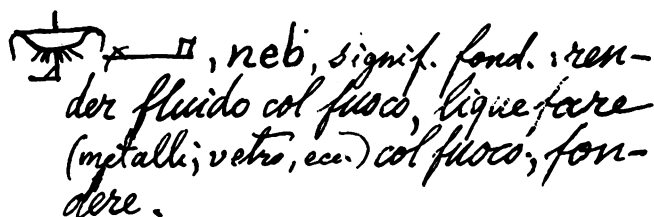 , neb, signif. fond.: ren-
der fluido col fuoco, liquefare
(metalli; vetro, ecc.) col fuoco; fon-
dere.